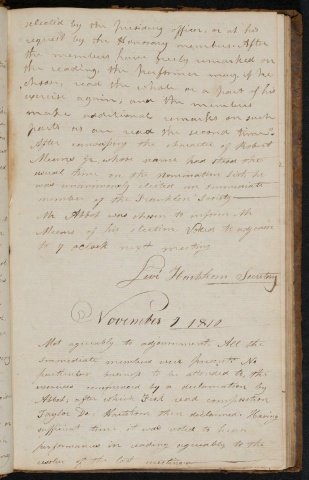 selected by the presiding officer, or at his
request by the Honorary members. After
the members have freely remarked on
the reading, the performer may if he
chooses, read the whole or a part of his
exercise again, and the members
make additional remarks on such
parts as are read the second time.
After canvassing the character of Robert
Means Jr. whose name had stood the
usual time on the nomination list, he
was unanimously elected an immediate
member of the Franklin Society
Mr Abbot was chosen to inform Mr
Means of his election. Voted to adjourn
to 7 oclock next meeting
Levi Hartshorn Secretary
12 November 7 1810
Met agreeably to adjournment All the
immediate members were present No
particular business to be attended to, the
exercises commenced by a declamation by
Abbot, after which Fisk read composition
Taylor Do. Hartshorn then declaimed. Having
sufficient time it was voted to have
performances in reading agreeably to the
resolve of the last meeting